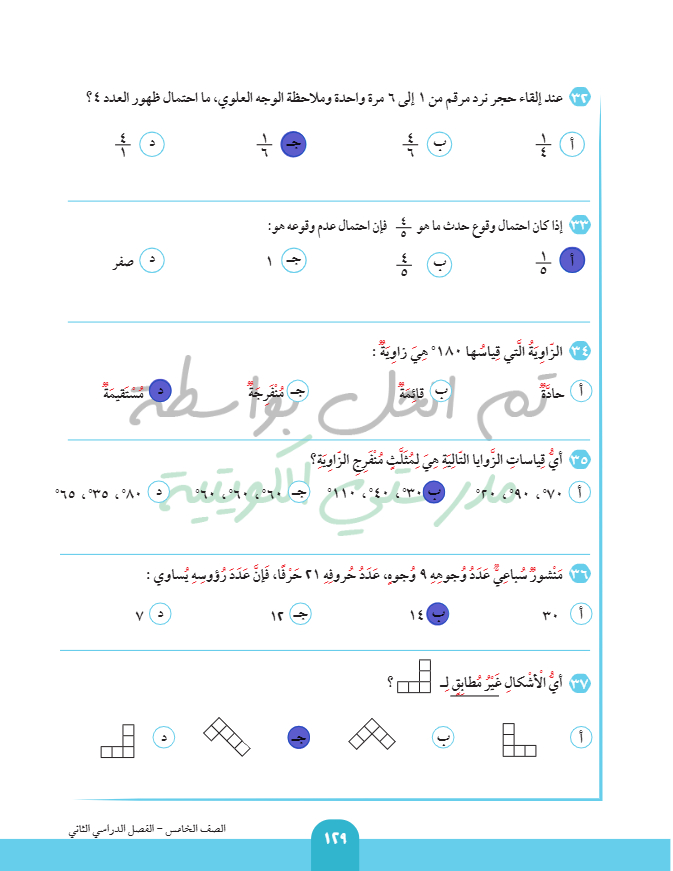 ٣٢ عند إلقاء حجر نرد مرقم من ١ إلى ٦ مرة واحدة وملاحظة الوجه العلوي، ما احتمال ظهور العدد ٤؟
أ ١/٤ ب ٤/٦ جـ ١/٦ د ٤/١
٣٣ إذا كان احتمال وقوع حدث ما هو ٤/٥ فإن احتمال عدم وقوعه هو:
أ ١/٥ ب ٤/٥ جـ ١ د صفر
٣٤ الزّاوِيَةُ الَّتي قِياسُها ١٨٠° هِيَ زاوِيَةٌ :
أ حادَّةٌ ب قائِمَةٌ جـ مُنْفَرِجَةٌ د مُسْتَقيمَةٌ
تم الحل بواسطة
٣٥ أيُّ قِياساتِ الزَّوايا التّالِيَةِ هِيَ لِمُثَلَّثٍ مُنْفَرِجِ الزّاوِيَةِ؟
أ ٧٠°، ٩٠°، ٢٠° ب ٣٠°، ٤٠°، ١١٠° جـ ٦٠°، ٦٠°، ٦٠° د ٨٠°، ٣٥°، ٦٥°
مدرستي الكويتية
٣٦ مَنْشورٌ سُباعِيٌّ عَدَدُ وُجوهِهِ ٩ وُجوهٍ، عَدَدُ حُروفِهِ ٢١ حَرْفًا، فَإنَّ عَدَدَ رُؤوسِهِ يُساوي :
أ ٣٠ ب ١٤ جـ ١٢ د ٧
٣٧ أيُّ الْأشْكالِ غَيْرُ مُطابِقٍ لِـ ؟
أ ب جـ د
الصف الخامس – الفصل الدراسي الثاني
١٢٩